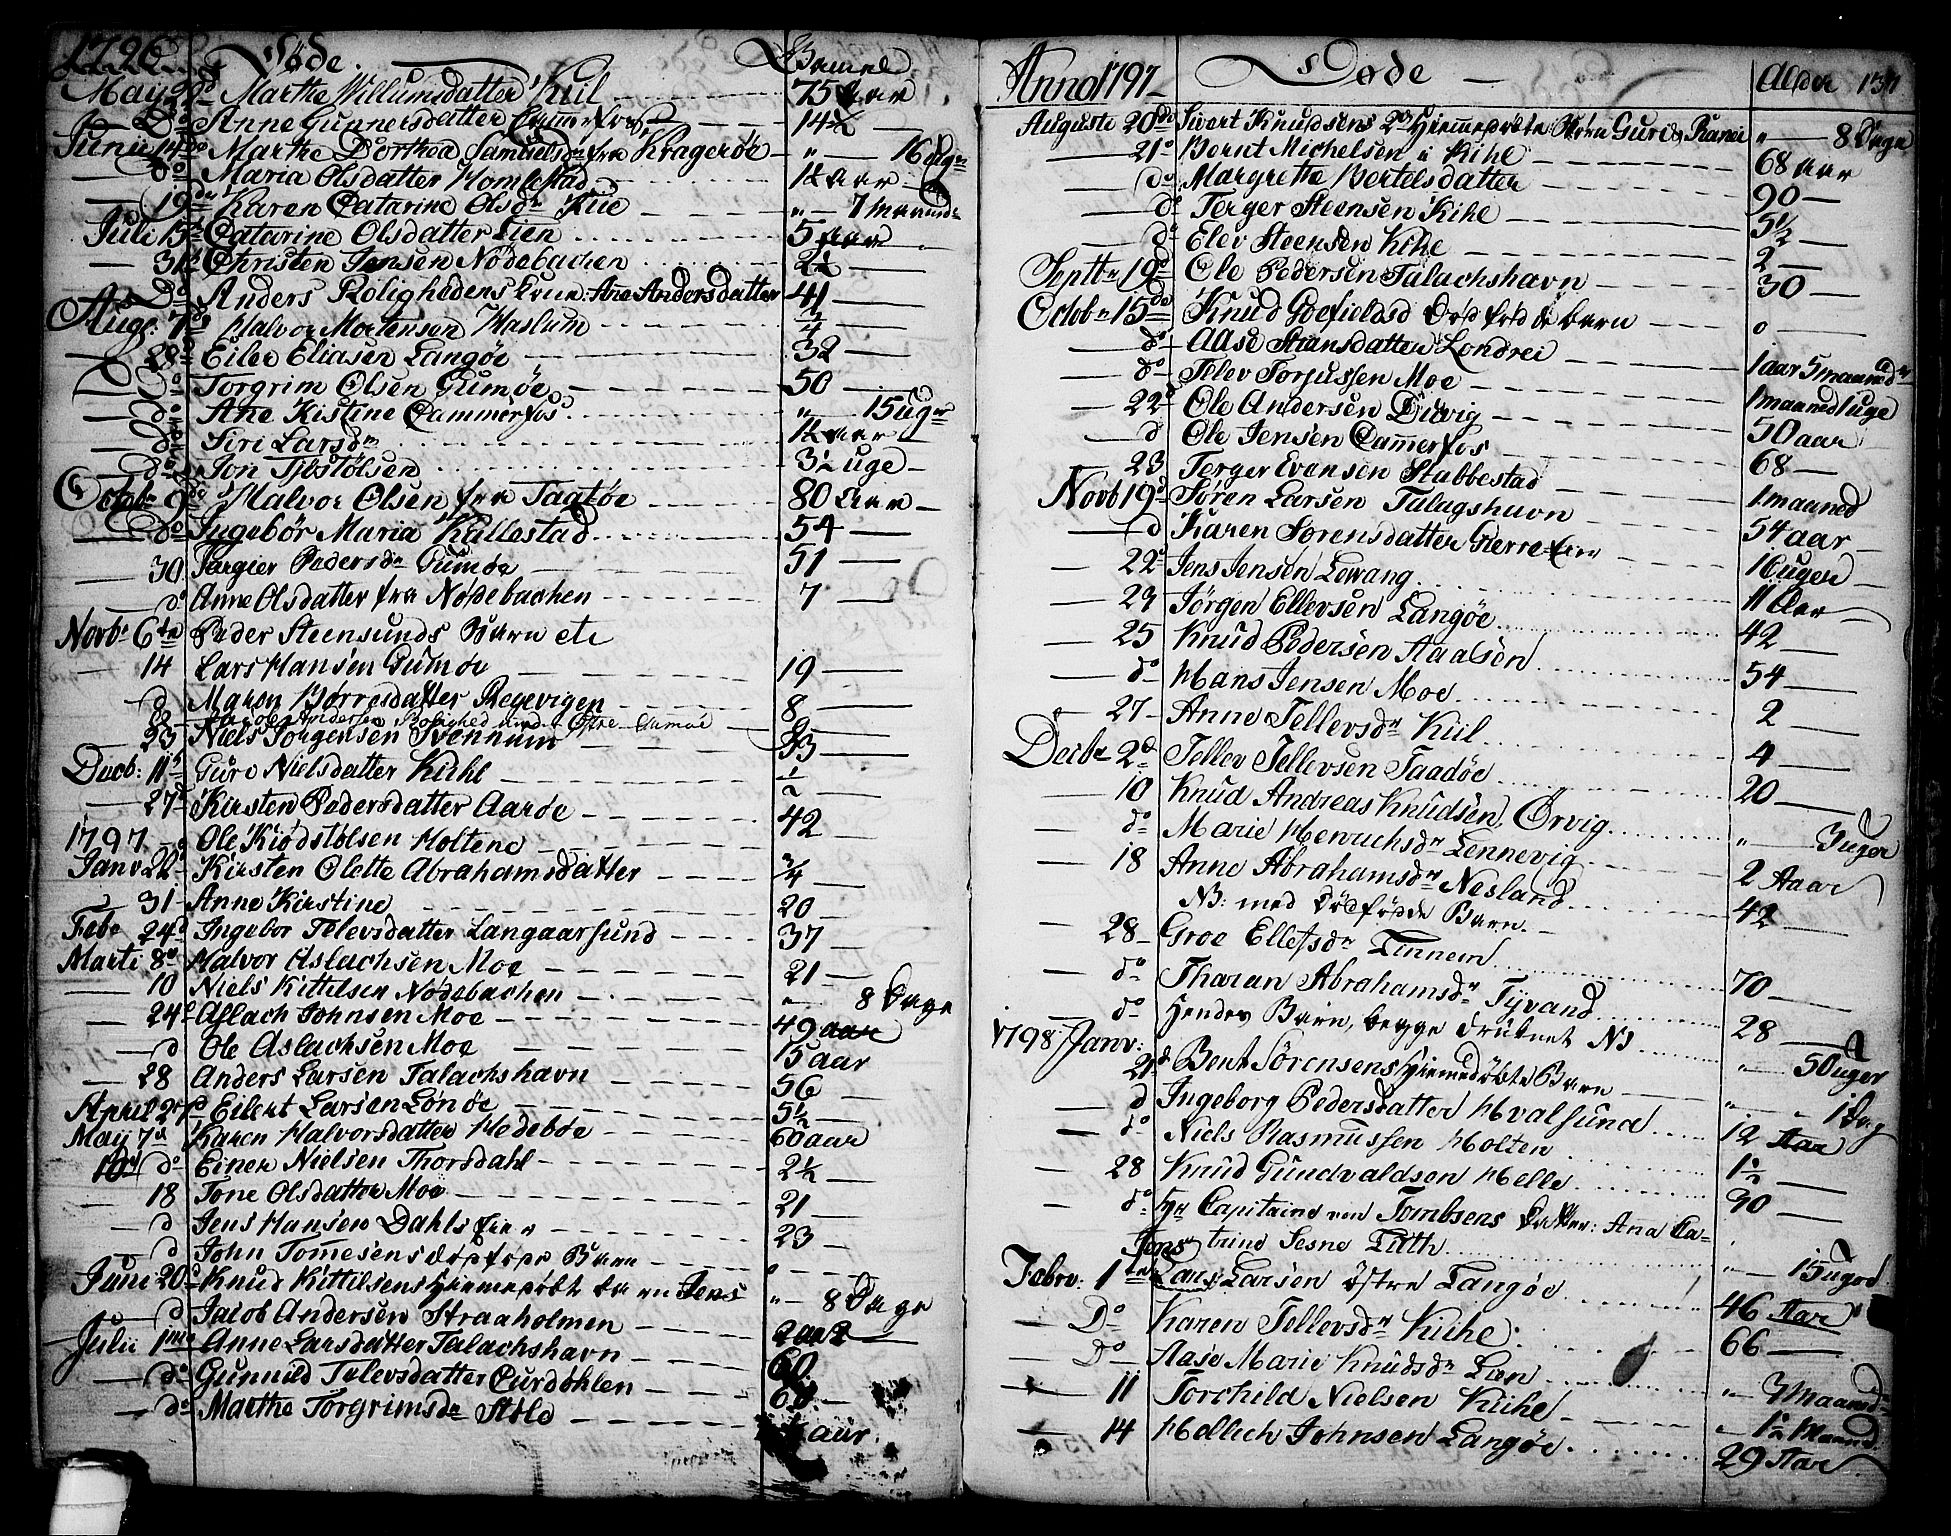 1796 Døde. Bamel
May 22d Marthe Willumsdatter Kiil 75 Aar
Do Anne Gunnersdatter Cammerfos 14½
Junii 14de Marthe Dorthea Samuelsdr fra Kragerøe " 16 Ugr
do Maria Olsdatter Homlestad 1½ aar
19de Karen Catarine Olsdr Kiie " 7 maand
Juli 15 Catarine Olsdatter Lien 5 aar
31 Christen Jensen Nødebachen 2½
Do Anders Rolighedens Kone: Ane Andersdatter 41
Augs. 7de Halvor Mortensen Haslum ¾
28 Eiler Eliasen Langöe 32
Do Torgrim Olsen Gumøe 50
do Ane Kistine Cammerfos " 15 Ugr
do Siri Larsdr 1½ aar
do Jon Tjøstølsen 3½ uge
Octobr 9de Halvor Olsen fra Taatøe 80 Aar
do Ingebør Maria Kallestad 54
30 Jargier Pedersdr Gumøe 51
do Anne Olsdatter fra Nødebachen 7
Novbr 6te Peder Steensunds Barn etc
14 Lars Hansen Gumøe 19
d Maren Børresdatter Regevigen 8
23 Niels Jørgensen Svennum 33
Decb: 11 Guro Nielsdatter Kiihl ½
27 Kirsten Pedersdatter Aarøe 42
1797 Ole Kiødstølsen Holtene
Janv 22 Kirsten Olette Abrahamsdatter ¾
31 Anne Kirstine 20
Febr 24d Ingebor Televsdatter Langaarsund 37
Marti 8de Halvor Aslachsen Moe 21
10 Niels Kittelsen Nødebachen " 8 Dage
24 Aslach Johnsen Moe 49 aar
d Ole Aslachsen Moe 15 aar
28 Anders Larsen Talachshavn 56
April Eilert Larsen Lønøe 5½
May 7d Karen Halvorsdatter Hedebøe 60 aar
do Einer Nielsen Thorsdahl 2½
18 Tone Olsdatter Moe 21
d Jens Hansen Dahlsfien 23
d John Tommesens dødføde Barn
Juni 20 Knud Kittilsens Hiemmedøbt barn Jens " 8 Dage
d Jacob Andersen Straaholmen 2 aar
Julii 1me Anne Larsdatter Talachshavn 60
do Gunnild Televsdatter Purdøhlen
do Marthe Torgrimsdr Støle aar
Anno 1797 Døde Alder 137
Augusti 20de Sivert Knudsens 2de Hiemmedøbte Børn Guri & Ranei " 8 Dage
21 Bernt Michelsen i Kihl 68 aar
do Margrethe Bertelsdatter 90
do Terger Steensen Kihe 5½
do Elev Steensen Kihe 2
Septbr 19d Ole Pedersen Talachshavn 30
Octobr 15de Knud Goefields Dødføde barn 0
do Aase Steensdatter Londrei 1 aar 5 maaned
do Telev Torjussen Moe 1 maaned 1 uge
22 Ole Andersen Dilvig 50 aar
d Ole Jensen Camerfos 68
23 Terger Evensen Stabbestad 1 maaned
Novb 19d Søren Larsen Talagshavn 54 aar
d Karen Sørensdatter Gierrefien 16 uger
22 Jens Jensen Lewang 11 Aar
23 Jörgen Ellevsen Langøe 42
25 Knud Pedersen Aaalsen 54
do Hans Jensen Moe 2
27 Anne Tellevsdr Kiil 4
Decbr 2d Tellev Tellevsen Taadøe 20
10 Knud Andreas Knudsen, Ørvig " 3 uger
do Marie Henrichsdr Lennevig 2 Aar
18 Anne Abrahamsdr Nesland 42
NB: med dødføde Barn
28 Groe Ellefsdr Tinnem 70
do Tharan Abrahamsdr Tyvand 28
do Hendes Barn, begge druknet NB " 50 uger
1798 Janv:
21d Bent Sørensens Hiemedøbte Barn " 1 Dag
d Ingeborg Pedersdatter Hvalsund 12 Aar
do Niels Rasmussen Holten 1½
28 Knud Gundvaldsen Helle 90
do Hr Capitaine von Tombsens Datter: Ana Ca=
trine Sesne Tuth " 15 uger
Febrv: 1ste Jens Larsen Østre Langøe 46 Aar
Do Karen Tellevsdr Kiihe 66
Do Aase Marie Knudsdr Lien " 3 Maaned
11 Torchild Nielsen Kiihe " 1½ Maaned
14 Hellich Johnsen Langøe 29 Aar